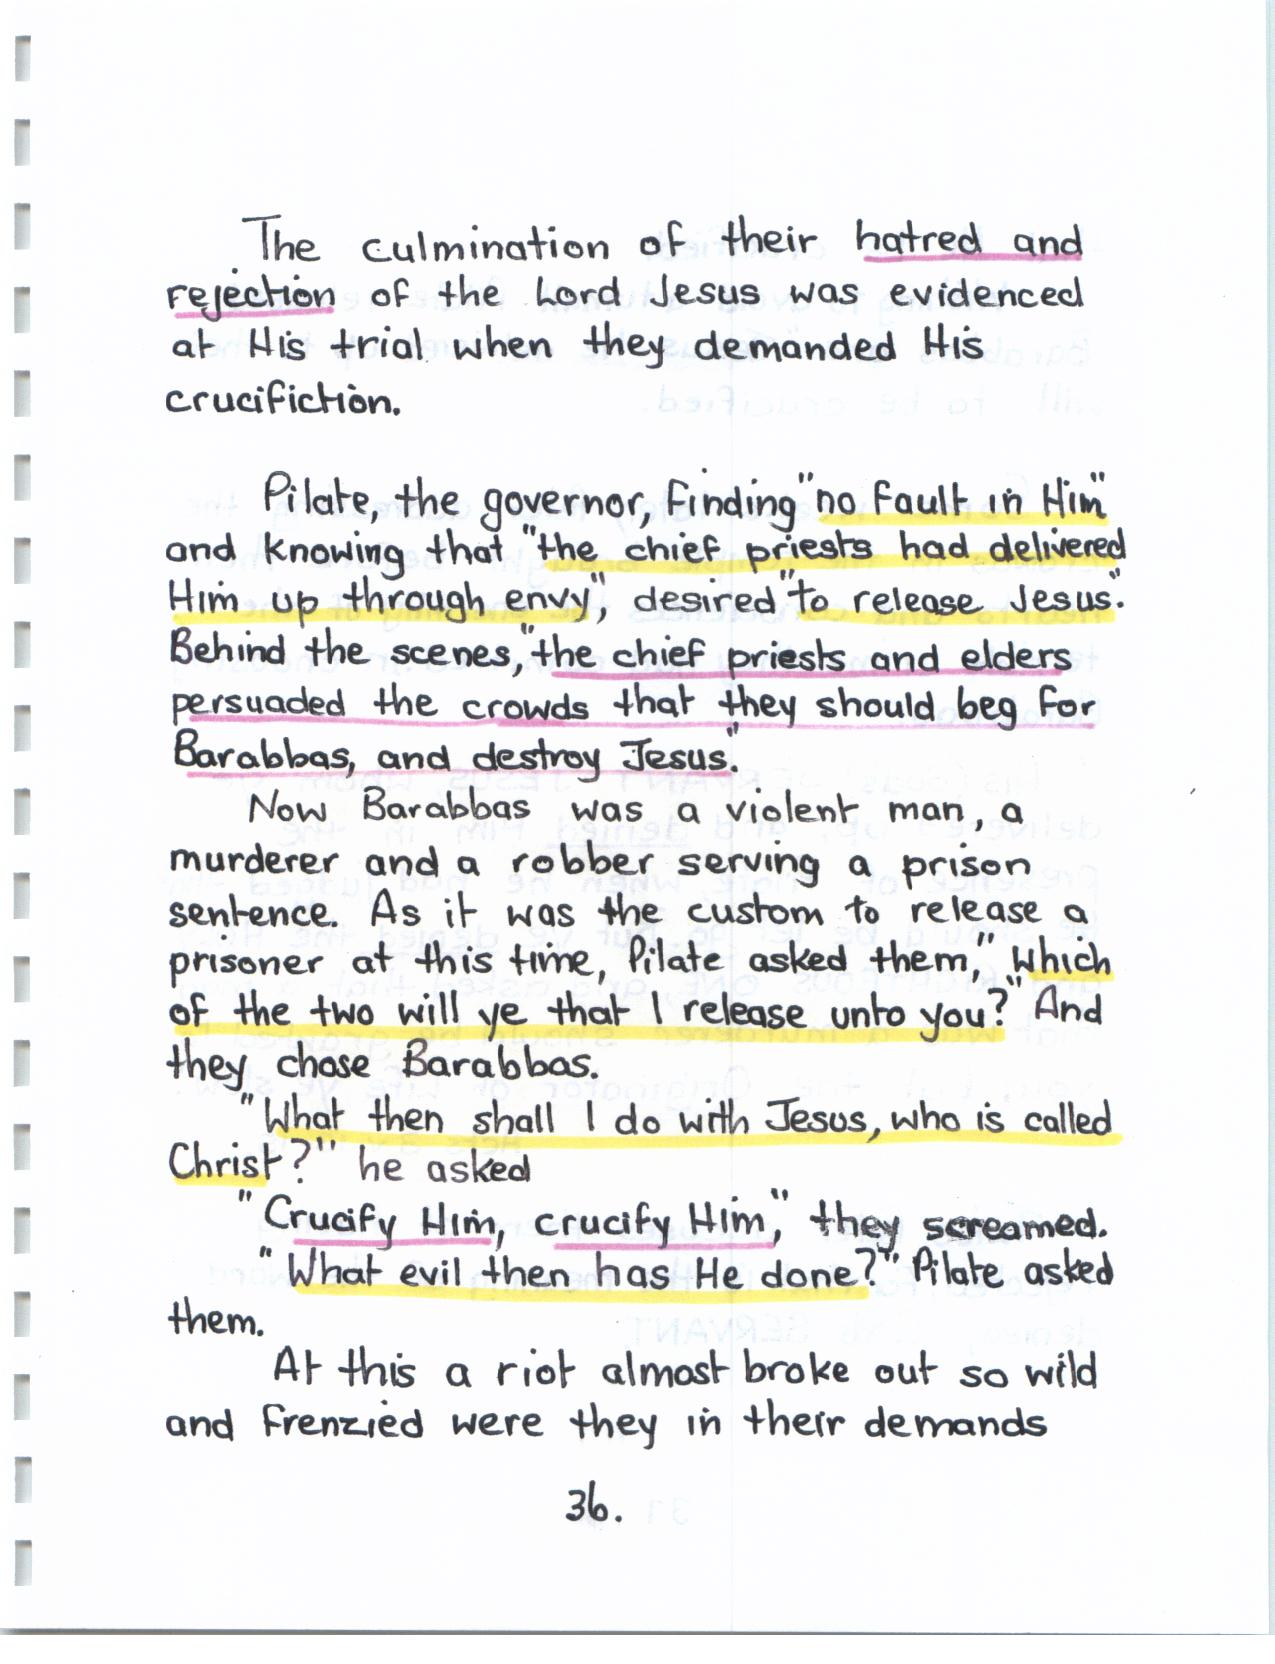 The culmination of their hatred and
rejection of the Lord Jesus was evidenced
at His trial when they demanded His
crucifiction.
Pilate, the governor finding "no fault in Him"
and knowing that "the chief priests had delivered
Him up through envy", desired "to release Jesus".
Behind the scenes, "the chief priests and elders
persuaded the crowds that they should beg for
Barabbas, and destroy Jesus."
Now Barabbas was a violent man, a
murderer and a robber serving a prison
sentence. As it was the custom to release a
prisoner at this time, Pilate asked them, "Which
of the two will ye that I release unto you?" And
they chose Barabbas.
"What then shall I do with Jesus, who is called
Christ?" he asked
"Crucify Him, crucify Him," they screamed.
"What evil then has He done?" Pilate asked
them.
At this a riot almost broke out so wild
and frenzied were they in their demands
36.